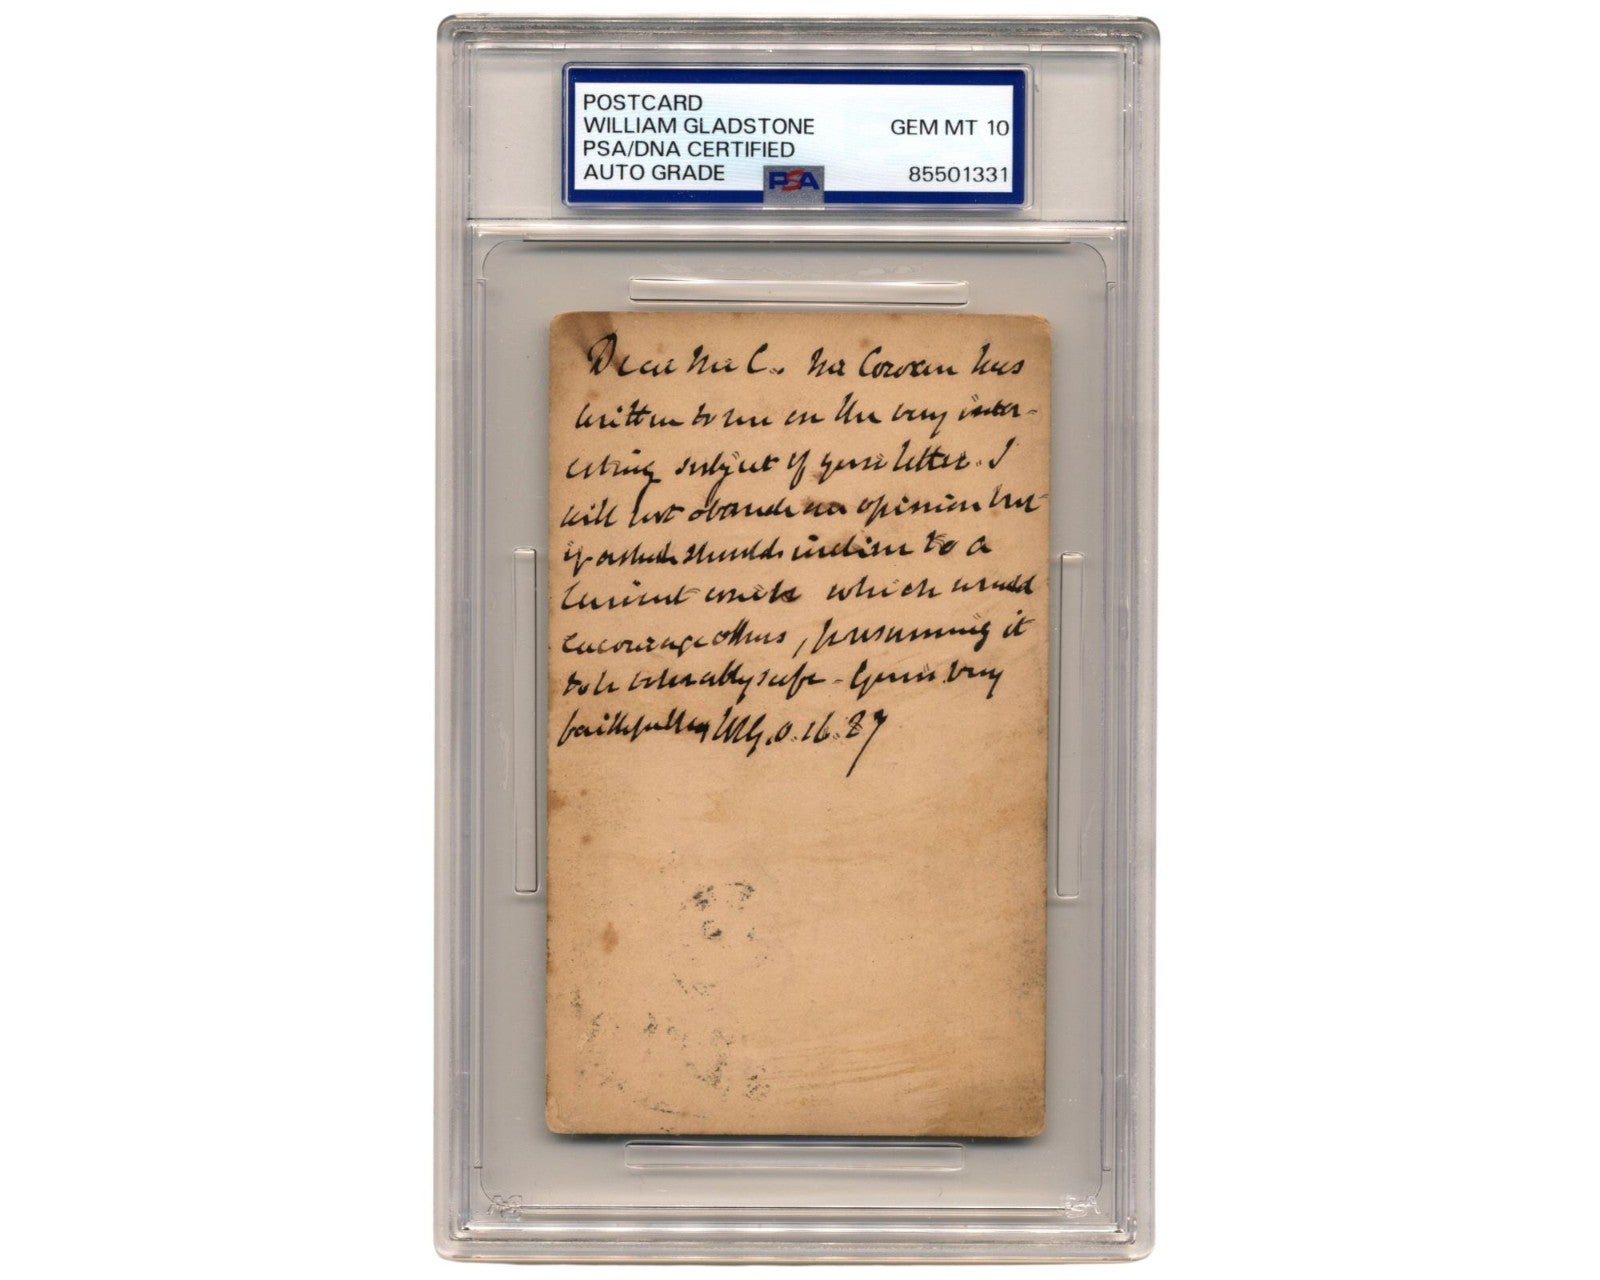 POSTCARD
WILLIAM GLADSTONE
GEM MT 10
PSA/DNA CERTIFIED
AUTO GRADE
PSA
85501331
Dear Mr C. Mr Cowan has
written to me on the very inter-
esting subject of your letter. I
will not obtrude an opinion but
if asked should incline to a
lenient which would
encourage others, presuming it
to be tolerably safe - Yours very
faithfully WG. O. 16. 87
PSA